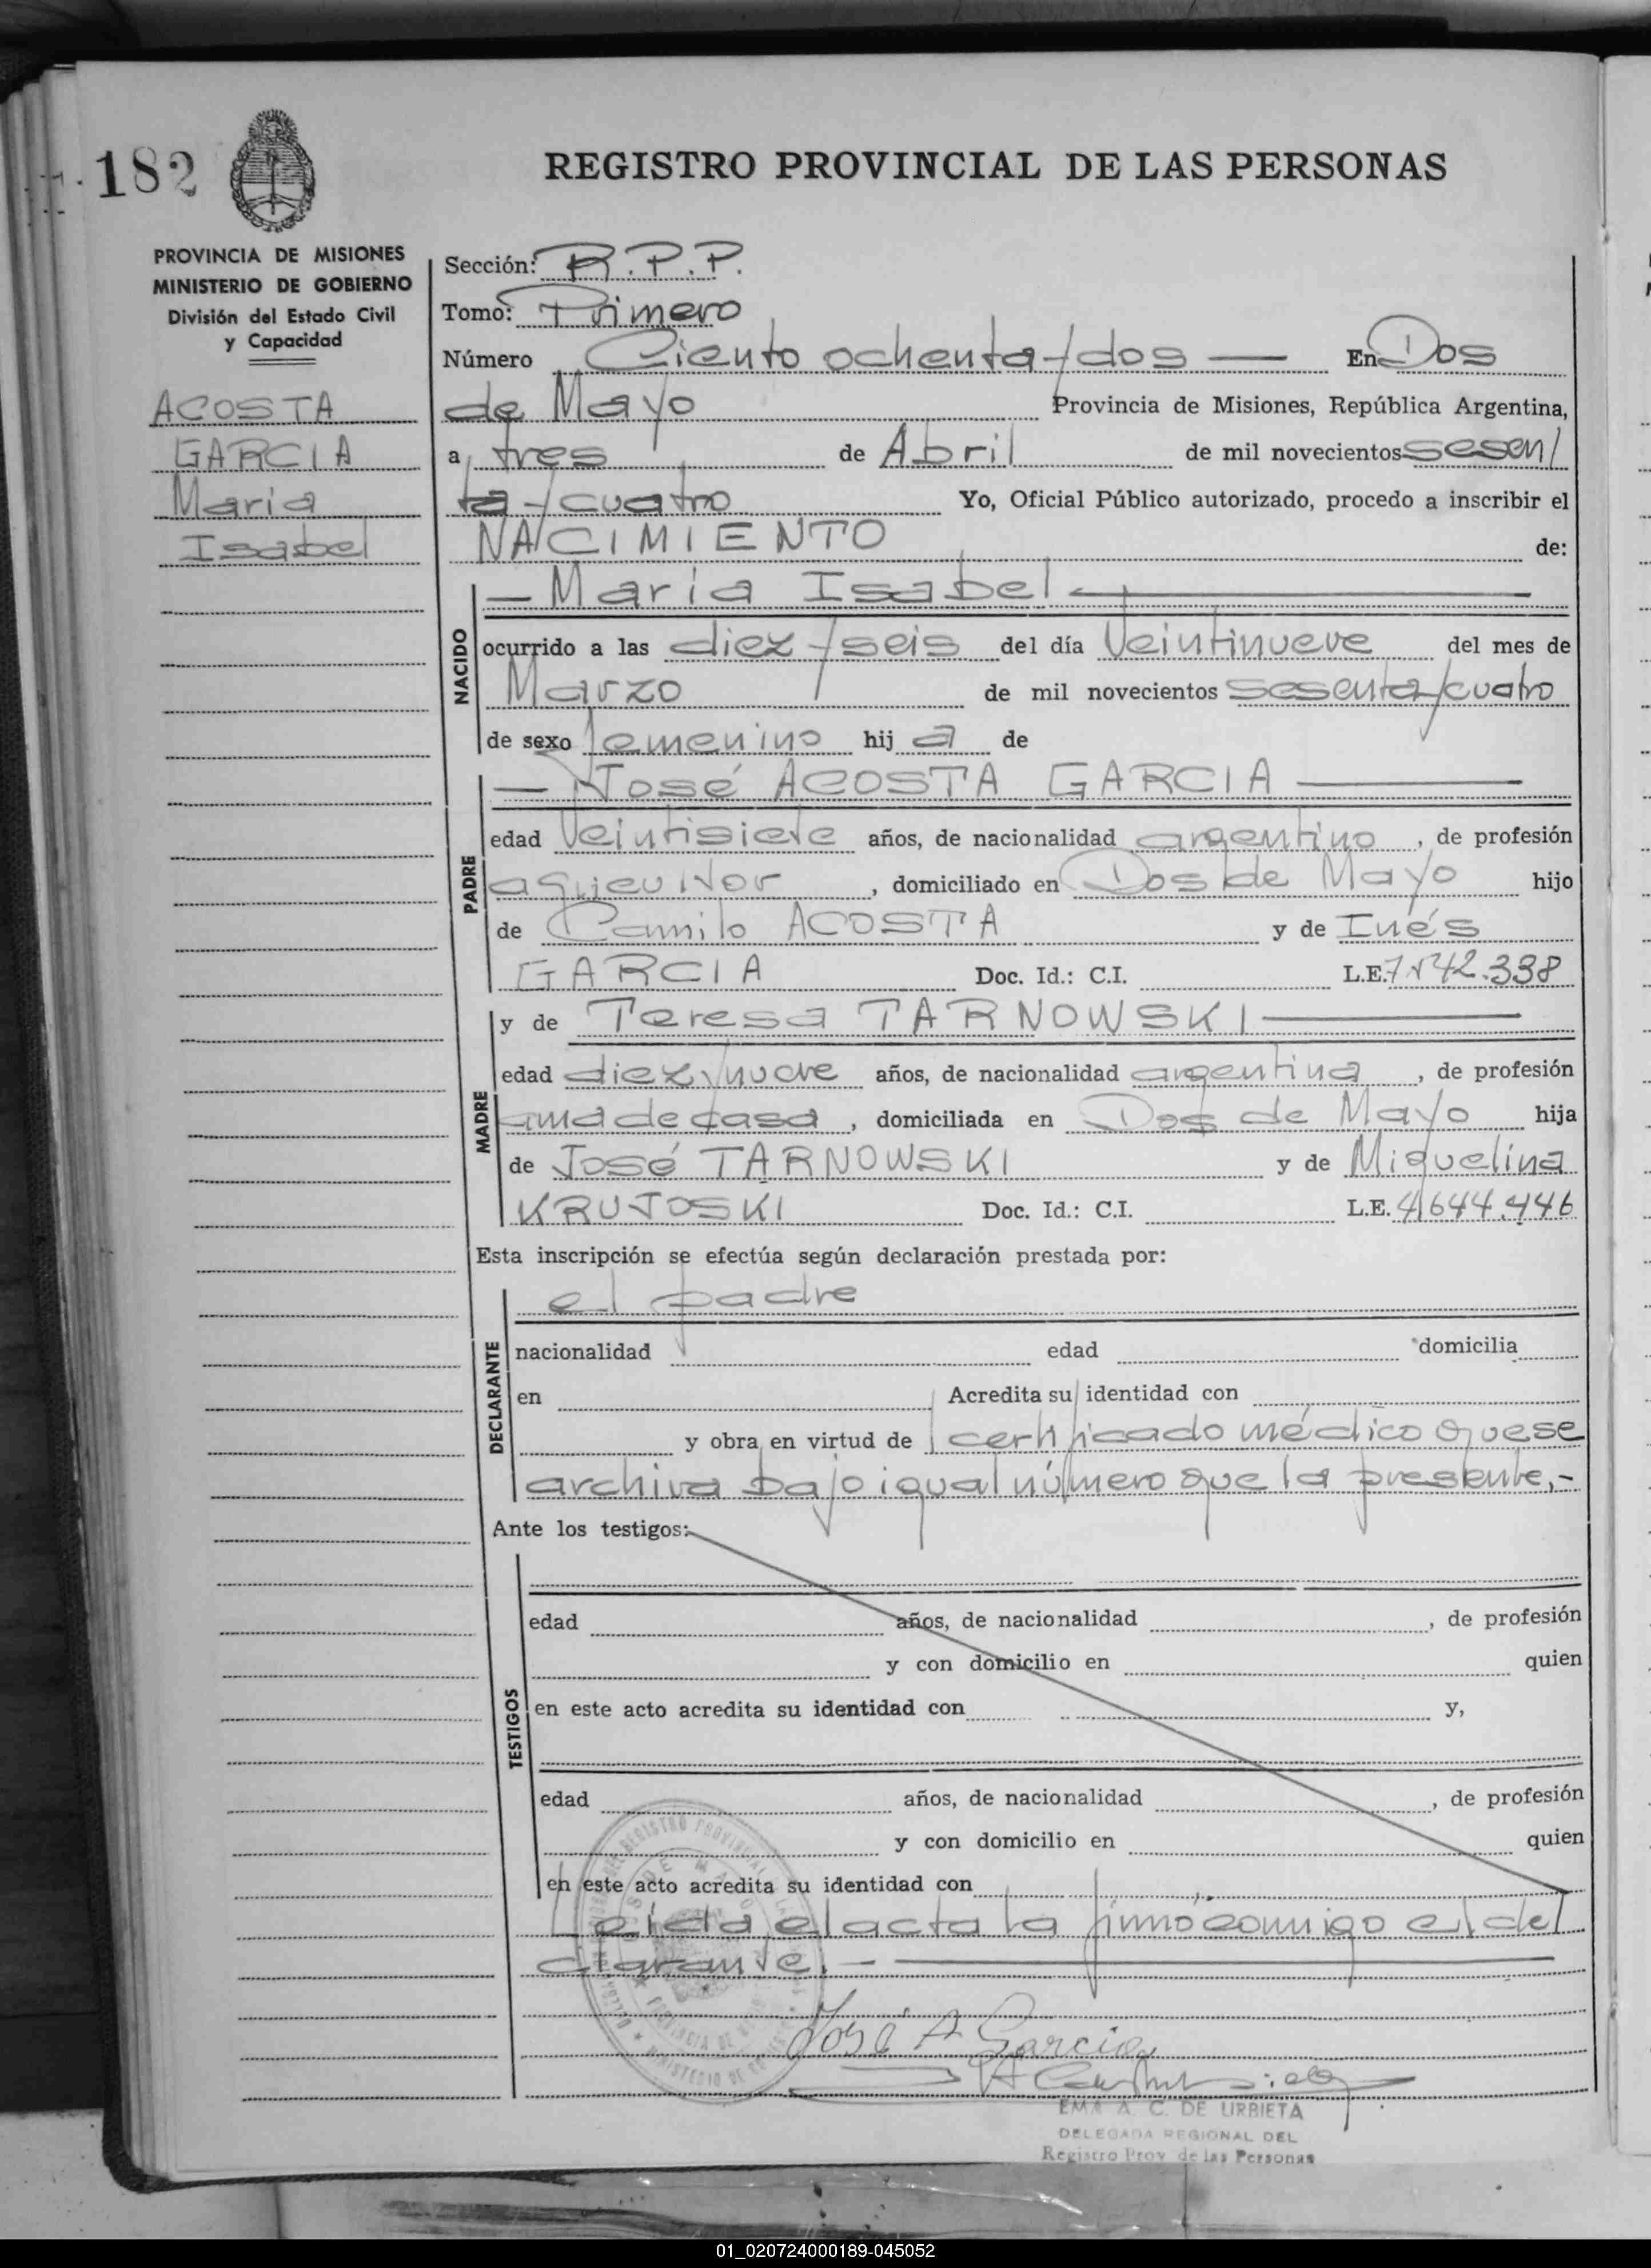 182
REGISTRO PROVINCIAL DE LAS PERSONAS
PROVINCIA DE MISIONES
MINISTERIO DE GOBIERNO
División del Estado Civil
y Capacidad
ACOSTA
GARCIA
Maria
Isabel
Sección: R.P.P.
Tomo: Primero
Número Ciento ochenta y dos — En Dos
de Mayo Provincia de Misiones, República Argentina,
a tres de Abril de mil novecientos sesen/
ta y cuatro Yo, Oficial Público autorizado, procedo a inscribir el
NACIMIENTO de:
— Maria Isabel —
NACIDO
ocurrido a las diez y seis del día Veintinueve del mes de
Marzo de mil novecientos sesenta y cuatro
de sexo femenino hija de
— José ACOSTA GARCIA —
PADRE
edad Veintisiete años, de nacionalidad argentino, de profesión
agricultor, domiciliado en Dos de Mayo hijo
de Camilo ACOSTA y de Inés
GARCIA Doc. Id.: C.I. L.E. 7.542.338
y de Teresa TARNOWSKI —
MADRE
edad diez y nueve años, de nacionalidad argentina, de profesión
ama de casa, domiciliada en Dos de Mayo hija
de José TARNOWSKI y de Miguelina
KRUJOSKI Doc. Id.: C.I. L.E. 4.644.446
Esta inscripción se efectúa según declaración prestada por:
el padre
DECLARANTE
nacionalidad edad domicilia
en Acredita su identidad con
y obra en virtud de certificado médico que se
archiva bajo igual número que la presente.-
Ante los testigos:
TESTIGOS
edad años, de nacionalidad , de profesión
y con domicilio en quien
en este acto acredita su identidad con y,
edad años, de nacionalidad , de profesión
y con domicilio en quien
en este acto acredita su identidad con
Leída el acta la firmó conmigo el del
clarante. —
José A Garcia
EMA A. C. DE URBIETA
DELEGADA REGIONAL DEL
Registro Prov. de las Personas
01_020724000189-045052